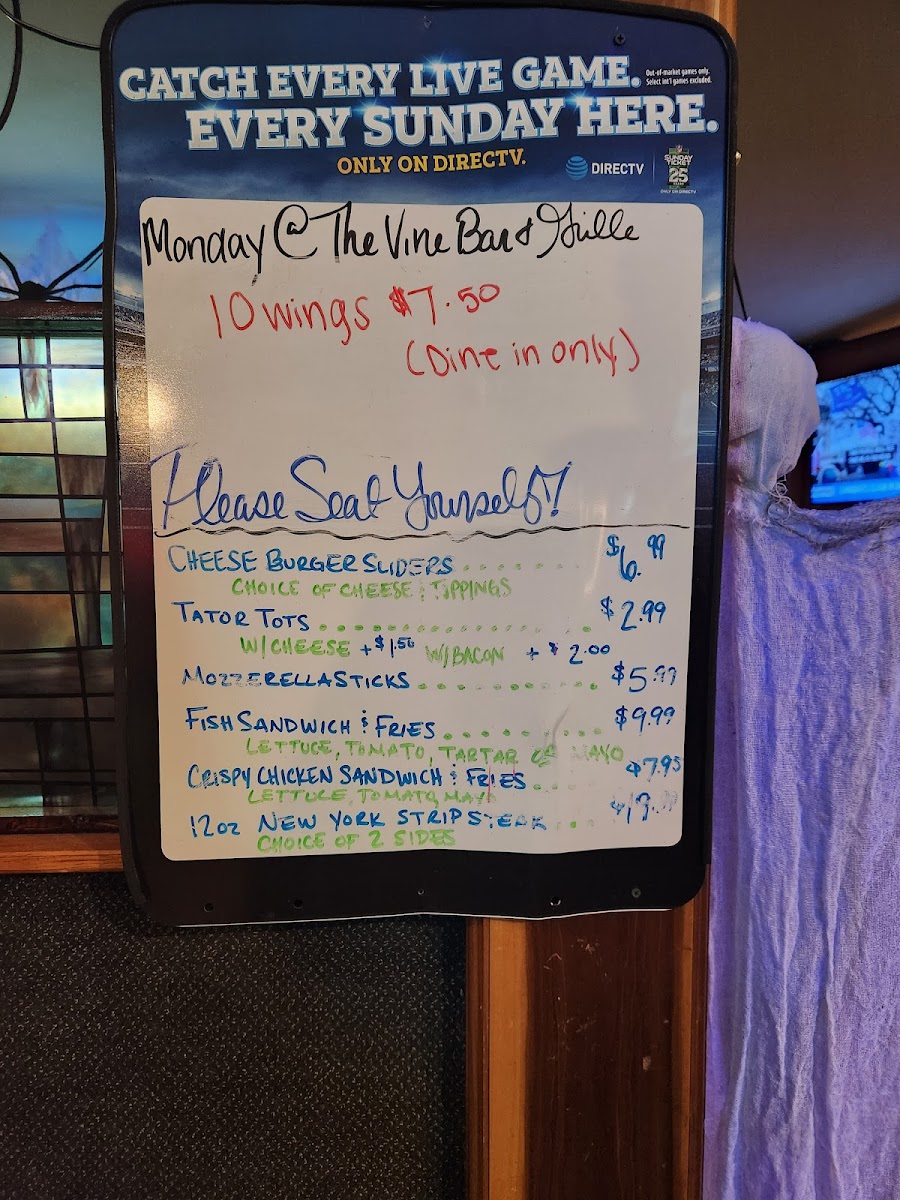 CATCH EVERY LIVE GAME.
Out-of-market games only.
Select int'l games excluded.
EVERY SUNDAY HERE.
ONLY ON DIRECTV.
DIRECTV
NFL
SUNDAY
TICKET
25
YEARS
ONLY ON DIRECTV
Monday @ The Vine Bar & Grille
10 wings $7.50
(Dine in only)
Please Seat Yourself!
CHEESE BURGER SLIDERS . . . . . . . $6.99
CHOICE OF CHEESE & TOPPINGS
TATOR TOTS . . . . . . . . . . . . . . $2.99
W/CHEESE +$1.50 W/BACON + $2.00
MOZZERELLA STICKS . . . . . . . . . . $5.99
FISH SANDWICH & FRIES . . . . . . . . $9.99
LETTUCE, TOMATO, TARTAR OR MAYO
CRISPY CHICKEN SANDWICH & FRIES . . $7.95
LETTUCE, TOMATO, MAYO
12oz NEW YORK STRIP STEAK . .
CHOICE OF 2 SIDES